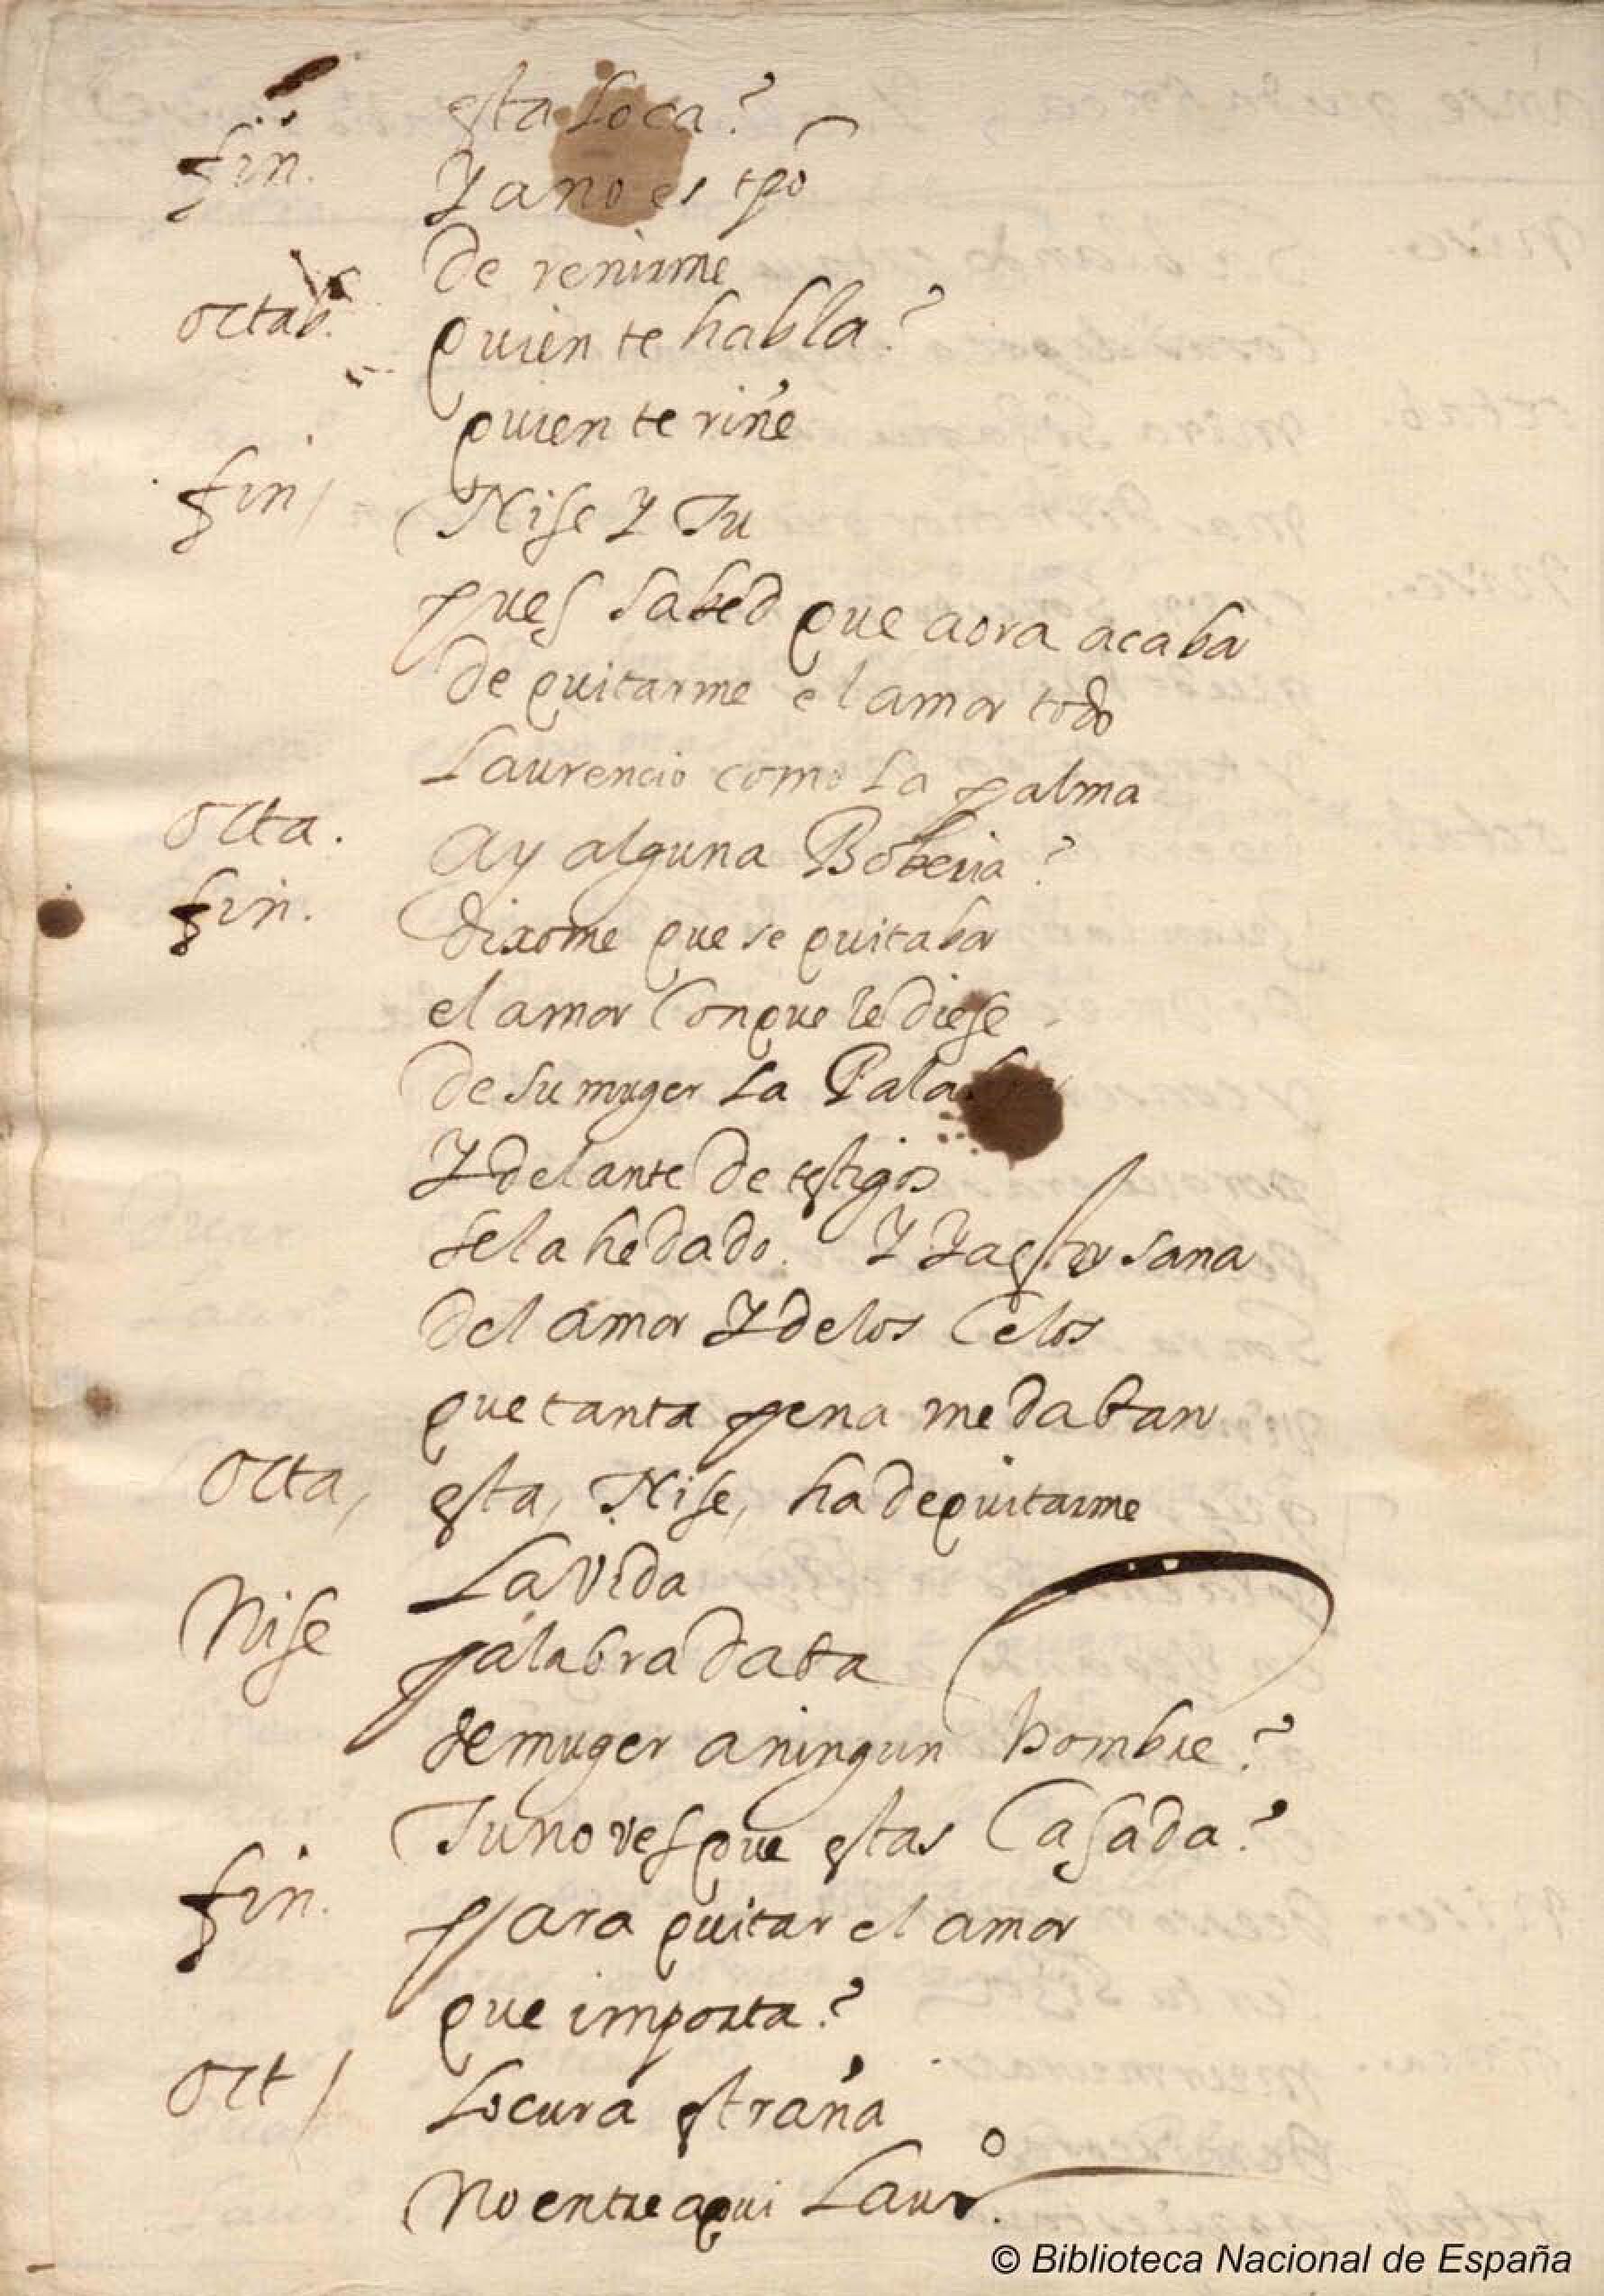 esta Loca?
fin. Ya no es tpõ
de renirme
octab. quien te habla?
quien te riñe
fin / Nise Y Tu
pues sabed que aora acaba
de quitarme el amor todo
Laurencio como La palma
Octa. Ay alguna Boberia?
fin. dixome que se quitaba
el amor Con que le diese
de su muger La Palabra
Y delante de testigos
se la he dado. Y Ya estoy sana
del amor Y de los Celos
que tanta pena me daban
Octa, esta, Nise, ha de quitarme
La vida
Nise palabra daba
de muger a ningun hombre?
Tu no ves que estas Casada?
fin. para quitar el amor
que importa?
Oct / Locura estraña
No entre aqui Laurº.
© Biblioteca Nacional de España